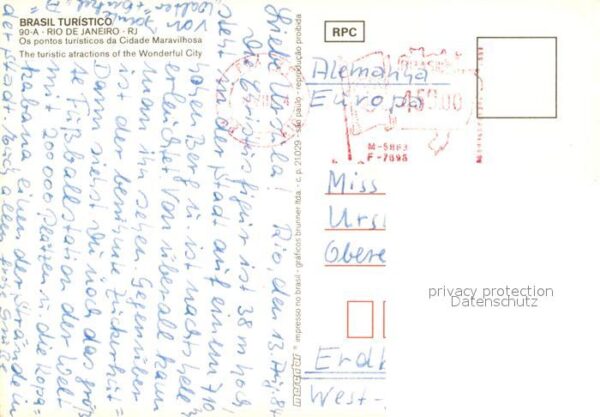 BRASIL TURÍSTICO
90-A - RIO DE JANEIRO - RJ
Os pontos turísticos da Cidade Maravilhosa
The turistic atractions of the Wonderful City
Rio, den 13. Aug. 84
Liebe Ursula!
Die Christusfigur ist 38 m hoch,
steht in der Stadt auf einem 710
hohen Berg u. ist nachts hell
erleuchtet. Von überall kann
man ihn sehen. Gegenüber
ist der berühmte Zuckerhut =
Dann siehst Du noch das größ
te Fußballstation der Welt
mit 200000 Plätzen u. die Kopa-
kabana, einen der Strände in
der Stadt.
mercator ® impresso no brasil - gráficos brunner ltda. - c. p. 21029 - são paulo - reprodução proibida
RPC
Alemanha
Europa
450,00
M-5883
F-7698
Miss
Urs
Obere
Erd
West-
privacy protection
Datenschutz